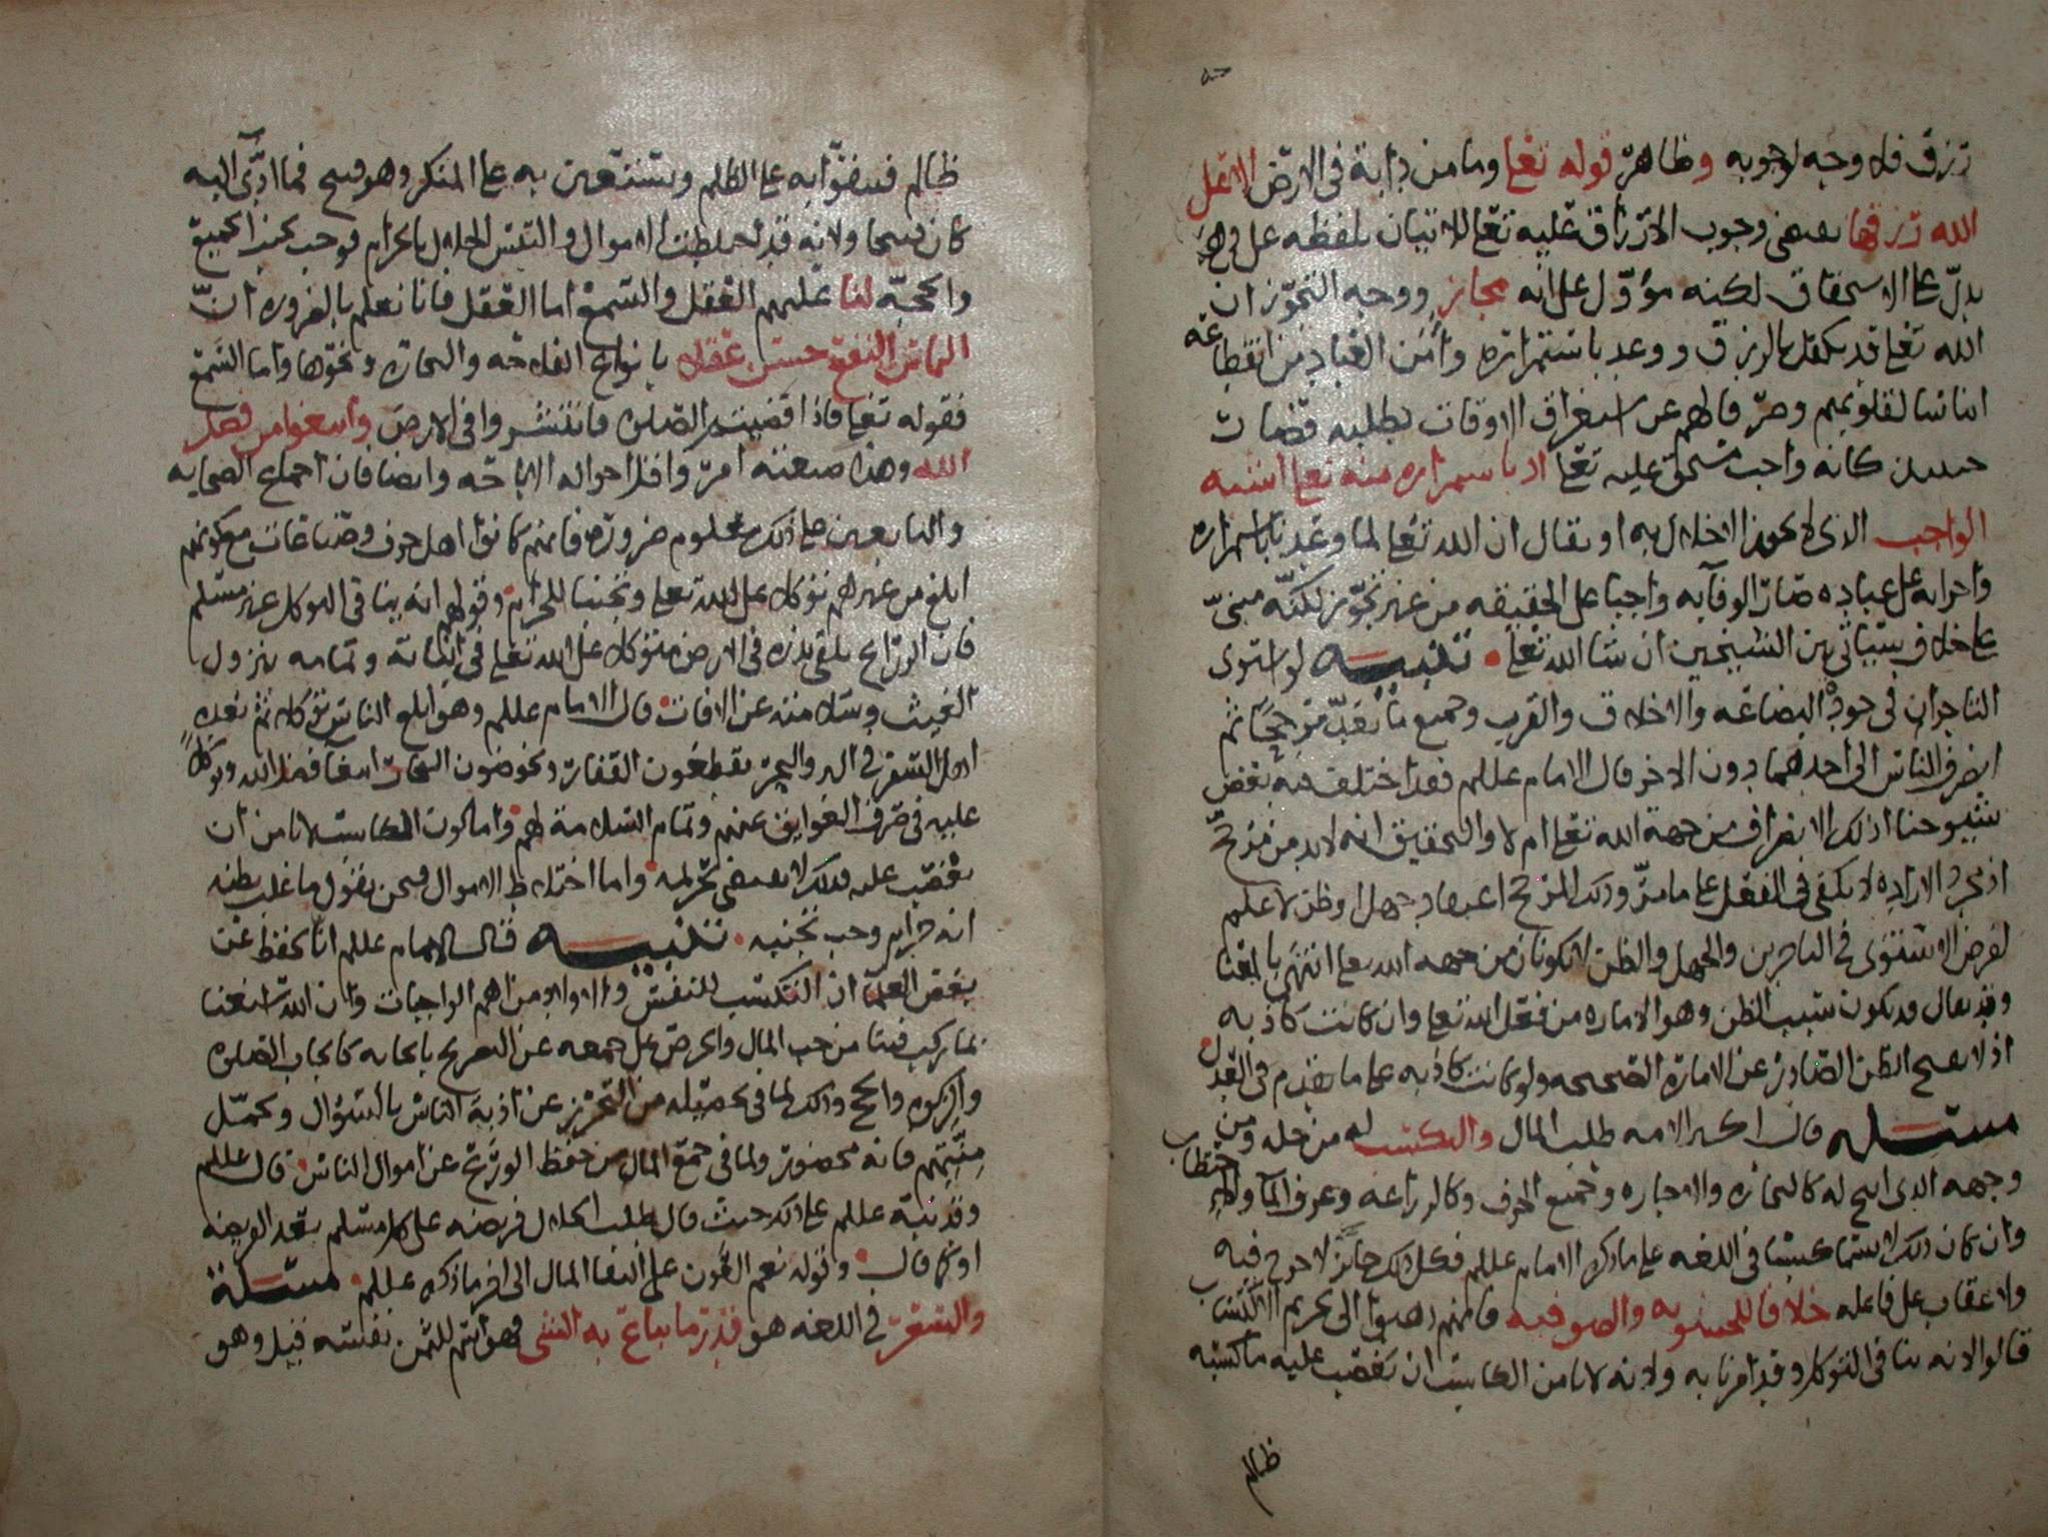 ترزق فلا وجه لوجوبه وظاهر قوله تعالى وما من دابة في الارض الا على
الله رزقها يقتضي وجوب الارزاق عليه تعالى للاتيان بلفظه على وهي
يدل على الاستحقاق لكنه مؤول على انه مجاز ووجه التجوز ان
الله تعالى قد تكفل بالرزق ووعد باستمراره وامن العباد من انقطاعه
ايناسا لقلوبهم وصرفا لهم عن استغراق الاوقات بطلبه فصارت
حينئذ كانه واجب مستحق عليه تعالى اذ باستمراره منه تعالى اشبه
الواجب الذي لا يجوز الاخلال به او يقال ان الله تعالى لما وعدنا باستمراره
واجرائه على عباده صار الوفاء به واجبا على الحقيقه من غير تجوز لكنه مبني
على خلاف سيأتي بين الشيخين ان شا الله تعالى تنبيه لو استوى
التاجران في جودة البضاعه والاخلاق والقرب وجميع ما يعد مرجحا ثم
انصرف الناس الى احدهما دون الاخر قال الامام عللم فقد اختلف فيه بعض
شيوخنا اذلك الانصراف من جهة الله تعالى ام لا والتحقيق انه لابد من مرجح
اذ مجرد الاراده لا تكفي في الفعل على ما مر وذلك المرجح اعتقاد جهل او ظن لا علم
لفرض الاستوى في التاجرين والجهل والظن لا يكونان من جهه الله تعالى انتهى بالمعنا
وقد يقال قد يكون سبب الظن وهو الاماره من فعل الله تعالى وان كانت كاذبه
اذ لا يقبح الظن الصادر عن الامارة الصحيحه ولو كانت كاذبه على ما تقدم في العدل
مسئله قال اكثر الامه طلب المال والتكسب له من حله ومن
وجهه الذي ابيح له كالتجاره والاجاره وجميع الحرف وكالزراعه وغرف المآ واحتطاب
وان كان ذلك لا يسمى كسبا في اللغه على ما ذكره الامام عللم فكل ذلك جائز لا حرج فيه
ولا عقاب على فاعله خلافا للحشويه والصوفيه فانهم ذهبوا الى تحريم الاكتساب
قالوا لانه ينافي التوكل وقد امرنا به ولانه لا يامن الكاسب ان يغصب عليه ما كسبه
ظالم
ظالم فيتقوا به على الظلم ويستعين به على المنكر وهو قبيح فما ادى اليه
كان قبيحا ولانه قد اختلطت الاموال والتبس الحلال بالحرام فوجب تجنب الجميع
والحجه لنا عليهم العقل والسمع اما العقل فانا نعلم بالضروره ان
التماس النفع حسن عقلا بانواع الفلاحه والتجاره ونحوها واما السمع
فقوله تعالى فاذا قضيت الصلاه فانتشروا في الارض وابتغوا من فضل
الله وهذا صيغته امر واقل احواله الاباحه وايضا فان اجماع الصحابه
والتابعين على ذلك معلوم ضروره فانهم كانوا اهل حرف وصناعات مع كونهم
ابلغ من غيرهم توكلا على الله تعالى وتجنبا للحرام وقولهم انه ينافي التوكل غير مسلم
فان الزارع يلقي بذره في الارض متوكلا على الله تعالى في انباته وتمامه بنزول
الغيث وسلامته عن الافات قال الامام عللم وهو ابلغ الناس توكلا ثم بعده
اهل السفر في البر والبحر يقطعون القفار ويخوضون البحار ابتغا فضل الله وتوكلا
عليه في صرف العوايق عنهم وتمام السلامة لهم واما كون الكاسب لا يامن ان
يغصب عليه فذلك لا يقتضي تحريمه واما اختلاط الاموال فنحن نقول ما غلب بظنه
انه حرام وجب تجنبه تنبيه قال الامام عللم انا نحفظ عن
بعض العلما ان التكسب للنفس والاولاد من اهم الواجبات وان الله استغنا
بما ركب فينا من حب المال والحرص على جمعه عن التصريح بايجابه كايجاب الصلاه
والزكوه والحج وذلك لما في تحصيله من التحرز عن اذية الناس بالسؤال وتحمل
منتهم فانه محضور ولما في جمع المال من حفظ الورع عن اموال الناس قال عللم
وقد نبه عللم على ذلك حيث قال طلب الحلال فريضه على كل مسلم بعد الفريضه
او كما قال وقوله نعم العون على التقى المال الى اخر ما ذكره عللم مسئلة
والسعر في اللغه هو قدر ما يباع به الشي فهو اسم للثمن نفسه قيل وهو